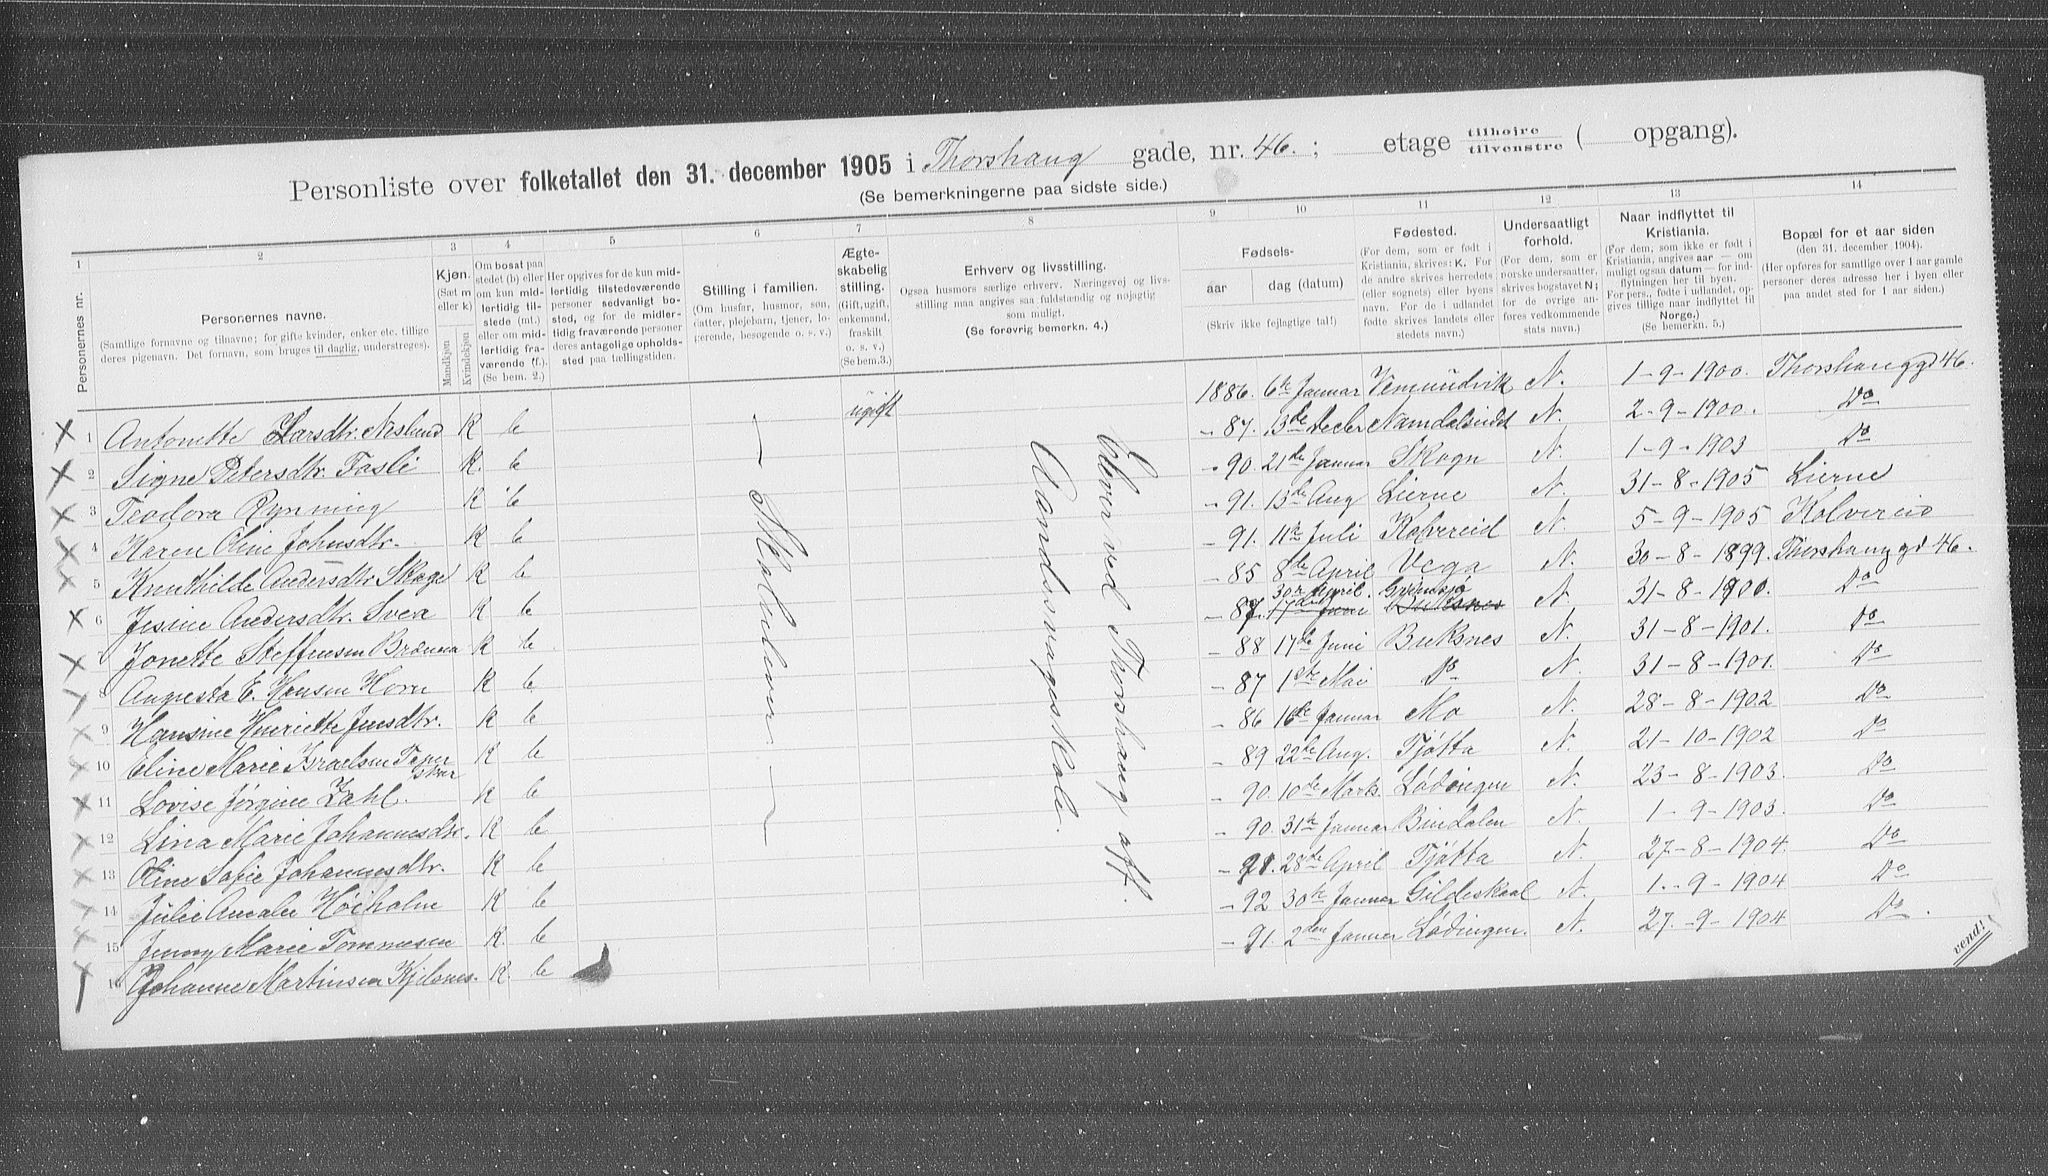 Personliste over folketallet den 31. december 1905 i Thorshaug gade, nr. 46. ; etage tilhøire tilvenstre ( opgang).
(Se bemerkningerne paa sidste side.)
1 2 3 4 5 6 7 8 9 10 11 12 13 14
Personernes nr.
Personernes navne.
(Samtlige fornavne og tilnavne; for gifte kvinder, enker etc. tillige deres pigenavn. Det fornavn, som bruges til daglig, understreges).
Kjøn. (Sæt m eller k)
Mandkjøn
Kvindekjøn
Om bosat paa stedet (b) eller om kun midlertidig tilstede (mt.) eller om midlertidig fraværende (f.). (Se bem. 2.)
Her opgives for de kun midlertidig tilstedeværende personer sedvanligt bosted, og for de midlertidig fraværende personer deres antagelige opholdssted paa tællingstiden.
Stilling i familien.
(Om husfar, husmor, søn, datter, plejebarn, tjener, logerende, besøgende o. s. v.)
Ægteskabelig stilling.
(Gift, ugift, enkemand, fraskilt o. s. v.) (Se bem. 3.)
Erhverv og livsstilling.
Ogsaa husmors særlige erhverv. Næringsvej og livsstilling maa angives saa fuldstændig og nøjagtig som muligt.
(Se forøvrig bemerkn. 4.)
Fødsels-
aar
dag (datum)
(Skriv ikke fejlagtige tal!)
Fødested.
(For dem, som er født i Kristiania, skrives: K. For de andre skrives herredets (eller sognets) eller byens navn. For de i udlandet fødte skrives landets eller stedets navn.)
Undersaatligt forhold.
(For dem, som er norske undersaatter, skrives bogstavet N; for de øvrige anføres vedkommende stats navn.)
Naar indflyttet til Kristiania.
(For dem, som ikke er født i Kristiania, angives aar — om muligt ogsaa datum — for indflytningen her til byen. For pers., født i udlandet, opgives tillige naar indflyttet til Norge.)
(Se bemerkn. 5.)
Bopæl for et aar siden
(den 31. december 1904).
(Her opføres for samtlige over 1 aar gamle personer deres adresse her i byen eller paa andet sted for 1 aar siden.)
1 Antonette Larsdtr. Aslund K b ugift 1886. 6te Januar Vemundvik N. 1-9-1900. Thorshauggd 46.
2 Signe Petersdtr. Fasli K. b - 87. 13de Decbr Namdalseidet N. 2-9-1900. Do
3 Teodora Rynning K b - 90. 21de Januar Skogn N. 1-9-1903 Do
4 Karen Oline Johnsdtr. K b - 91. 13de Aug Lierne N. 31-8-1905 Lierne
5 Knuthilde Andersdtr. Skage K b - 91. 11te Juli Kolvereid N. 5-9-1905 Kolvereid
6 Jesine Andersdtr. Svea K b - 85 8de April Vega N. 30-8-1899. Thorshauggd 46.
7 Jonette Steffensen Brænna K b - 87. 30te April. 17de Juni Grimsø Buksnes N. 31-8-1900. Do
8 Augusta E. Hansen Horn K b - 88 17de Juni Buksnes N. 31-8-1901. Do
9 Hansine Henriette Jensdtr. K b - 87 1ste Mai Do N. 31-8-1901. Do
10 Eline Marie Israelsen K b - 86 16de Januar Mo N. 28-8-1902 Do
11 Lovise Jørgine Zahl. K b - 89 22de Aug. Tjøtta N. 21-10-1902 Do
12 Lina Marie Johannesdtr. K b - 90. 10de Marts. Lødingen N. 23-8-1903. Do
13 Oline Sofie Johannesdtr. K b - 90. 31te Januar Bindalen N. 1-9-1903. Do
14 Julie Amalie Høiholm K b - 91. 28de April Tjøtta N. 27-8-1904. Do
15 Jenny Marie Tommesen K. b - 92 30te Januar Gildeskaal N. 1-9-1904 Do
16 Johanne Martinsen Kjelsnes. K. b - 91. 2den Januar Lødingen. N. 27-9-1904 Do.
Skoleelever.
Elever ved Thorshaug off.
Aandssvageskole.
vend!